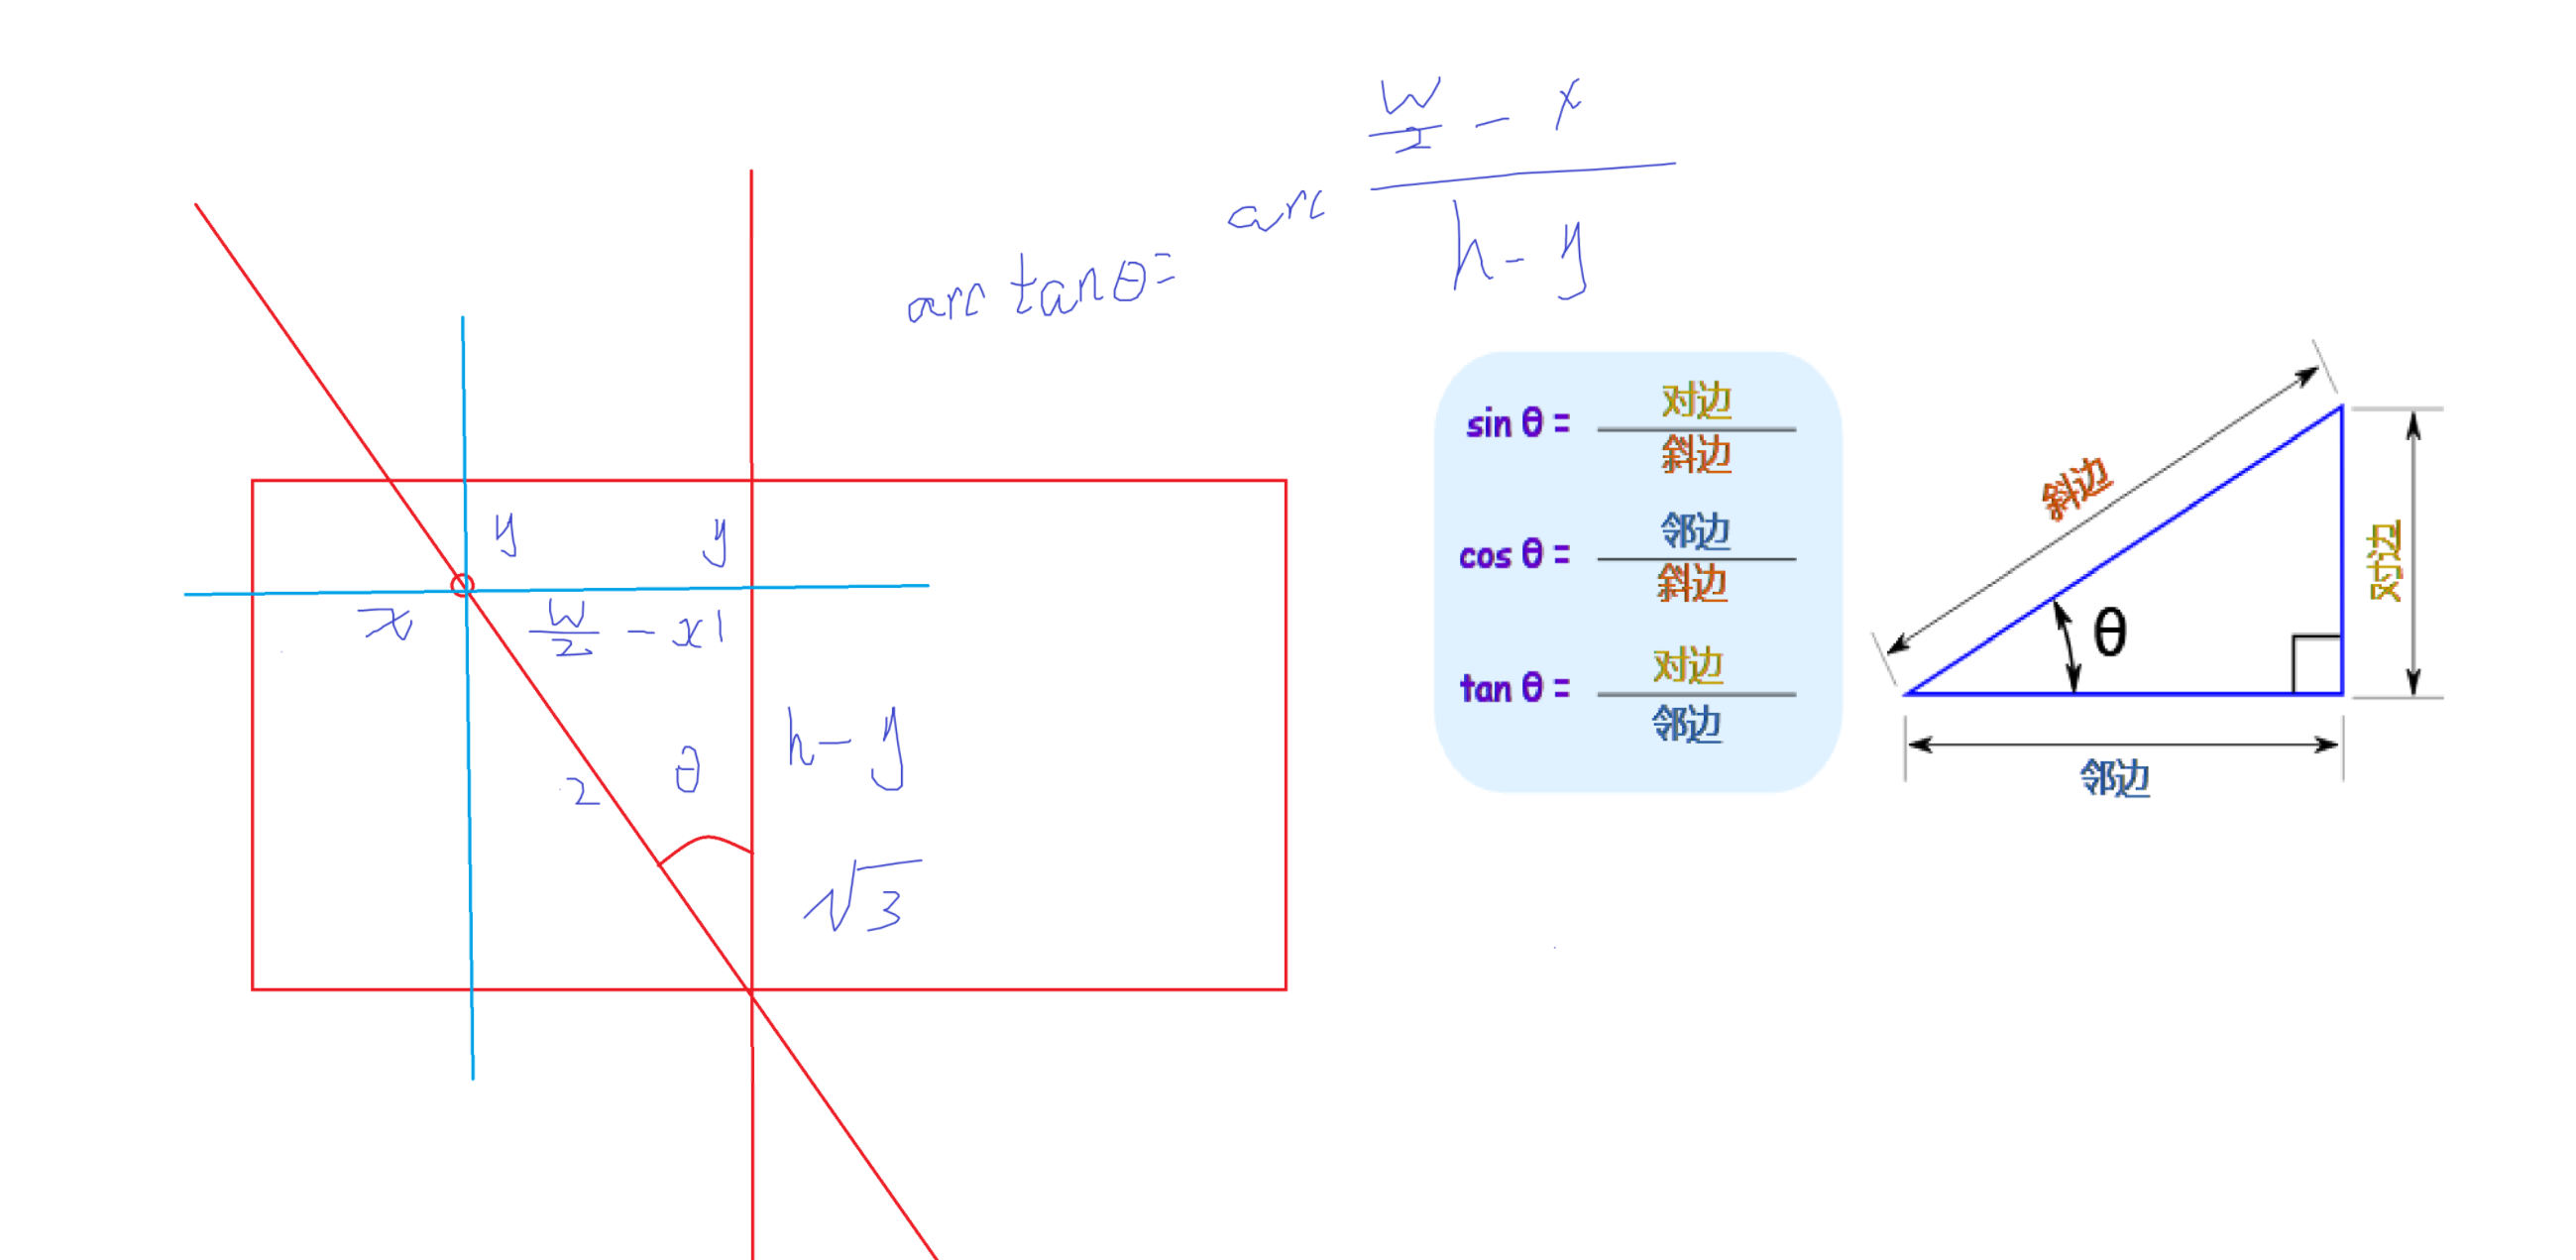 arc tanθ = arc (w/2 - x)/(h - y)
y
y
x
w/2 - x
1
θ
h - y
2
√3
sin θ = 对边/斜边
cos θ = 邻边/斜边
tan θ = 对边/邻边
斜边
θ
对边
邻边